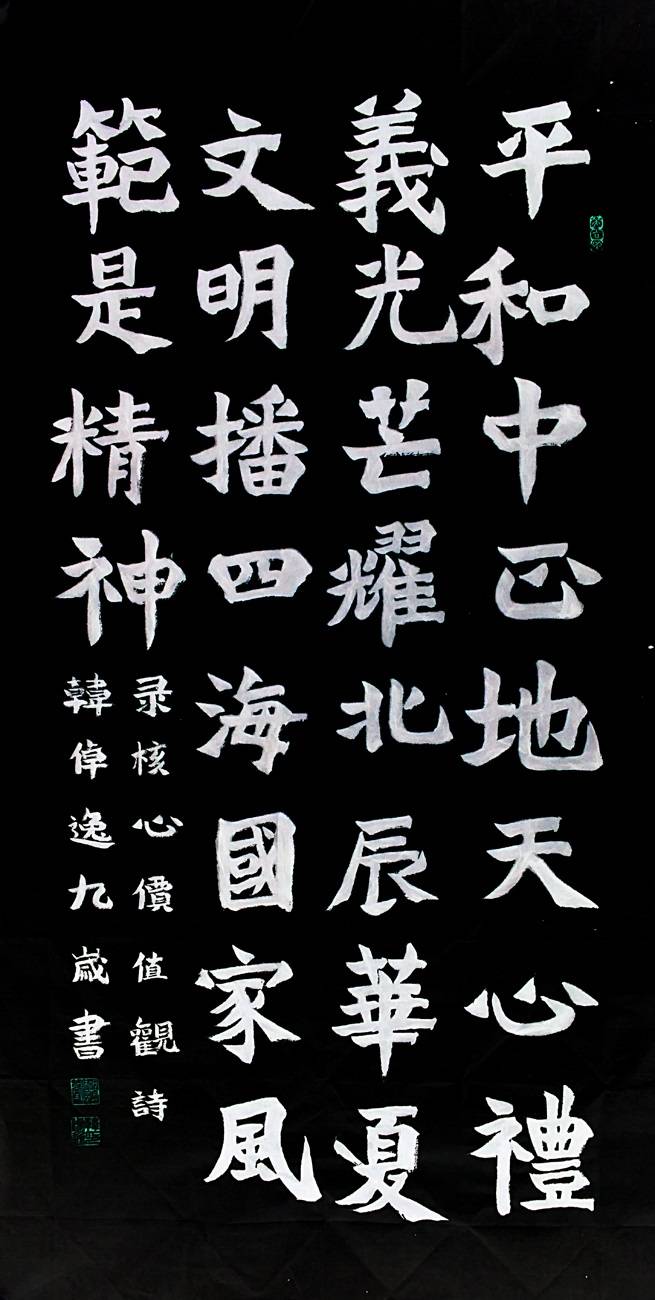 平和中正地天心禮
義光芒耀北辰華夏
文明播四海國家風
範是精神
录核心價值觀詩
韓倬逸九歲書